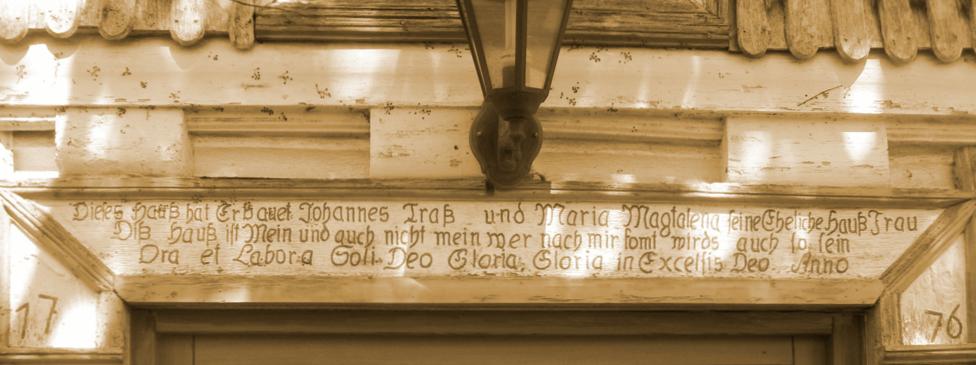 Dieses Hauß hat Erbauet Johannes Traß und Maria Magtalena seine Eheliche Hauß Frau
Diß Hauß ist Mein und auch nicht mein wer nach mir komt wirds auch so sein
Ora et Labora Soli Deo Gloria, Gloria in Excelsis Deo Anno
17 76